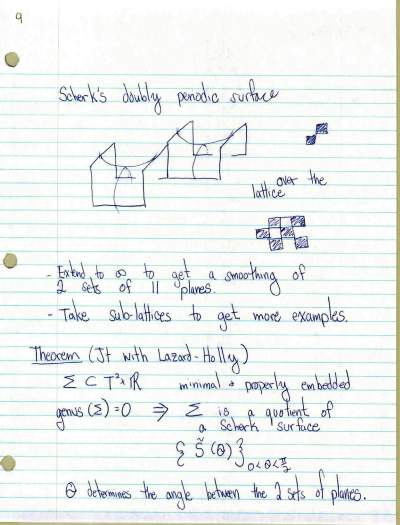 9
Scherk's doubly periodic surface
over the
lattice
- Extend to ∞ to get a smoothing of
2 sets of || planes.
- Take sub-lattices to get more examples.
Theorem (Jt with Lazard-Holly)
Σ ⊂ T² × ℝ minimal + properly embedded
genus (Σ) = 0 ⇒ Σ is a quotient of
a Scherk surface
{ S̃(θ) }₀<θ<π/2
θ determines the angle between the 2 sets of planes.